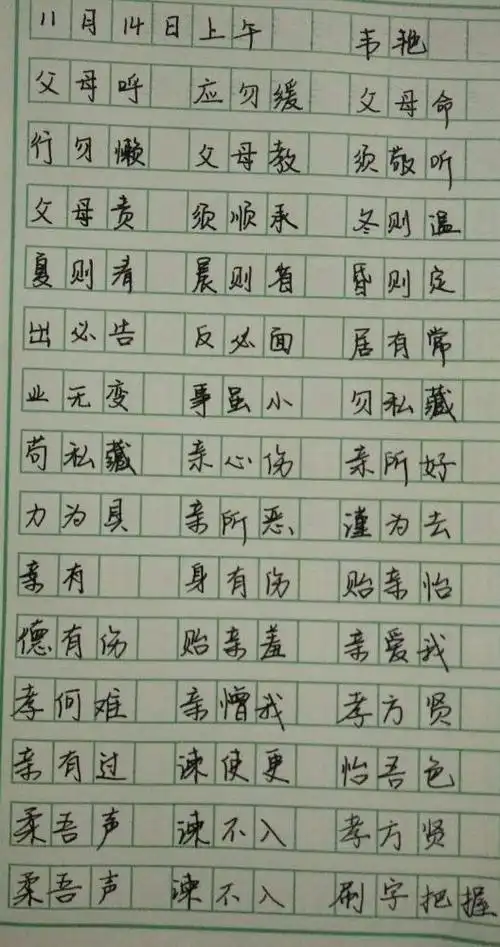 11月14日上午 韦艳
父母呼 应勿缓 父母命
行勿懒 父母教 须敬听
父母责 须顺承 冬则温
夏则凊 晨则省 昏则定
出必告 反必面 居有常
业无变 事虽小 勿私藏
苟私藏 亲心伤 亲所好
力为具 亲所恶 谨为去
亲有 身有伤 贻亲怡
德有伤 贻亲羞 亲爱我
孝何难 亲憎我 孝方贤
亲有过 谏使更 怡吾色
柔吾声 谏不入 孝方贤
柔吾声 谏不入 刷字把握